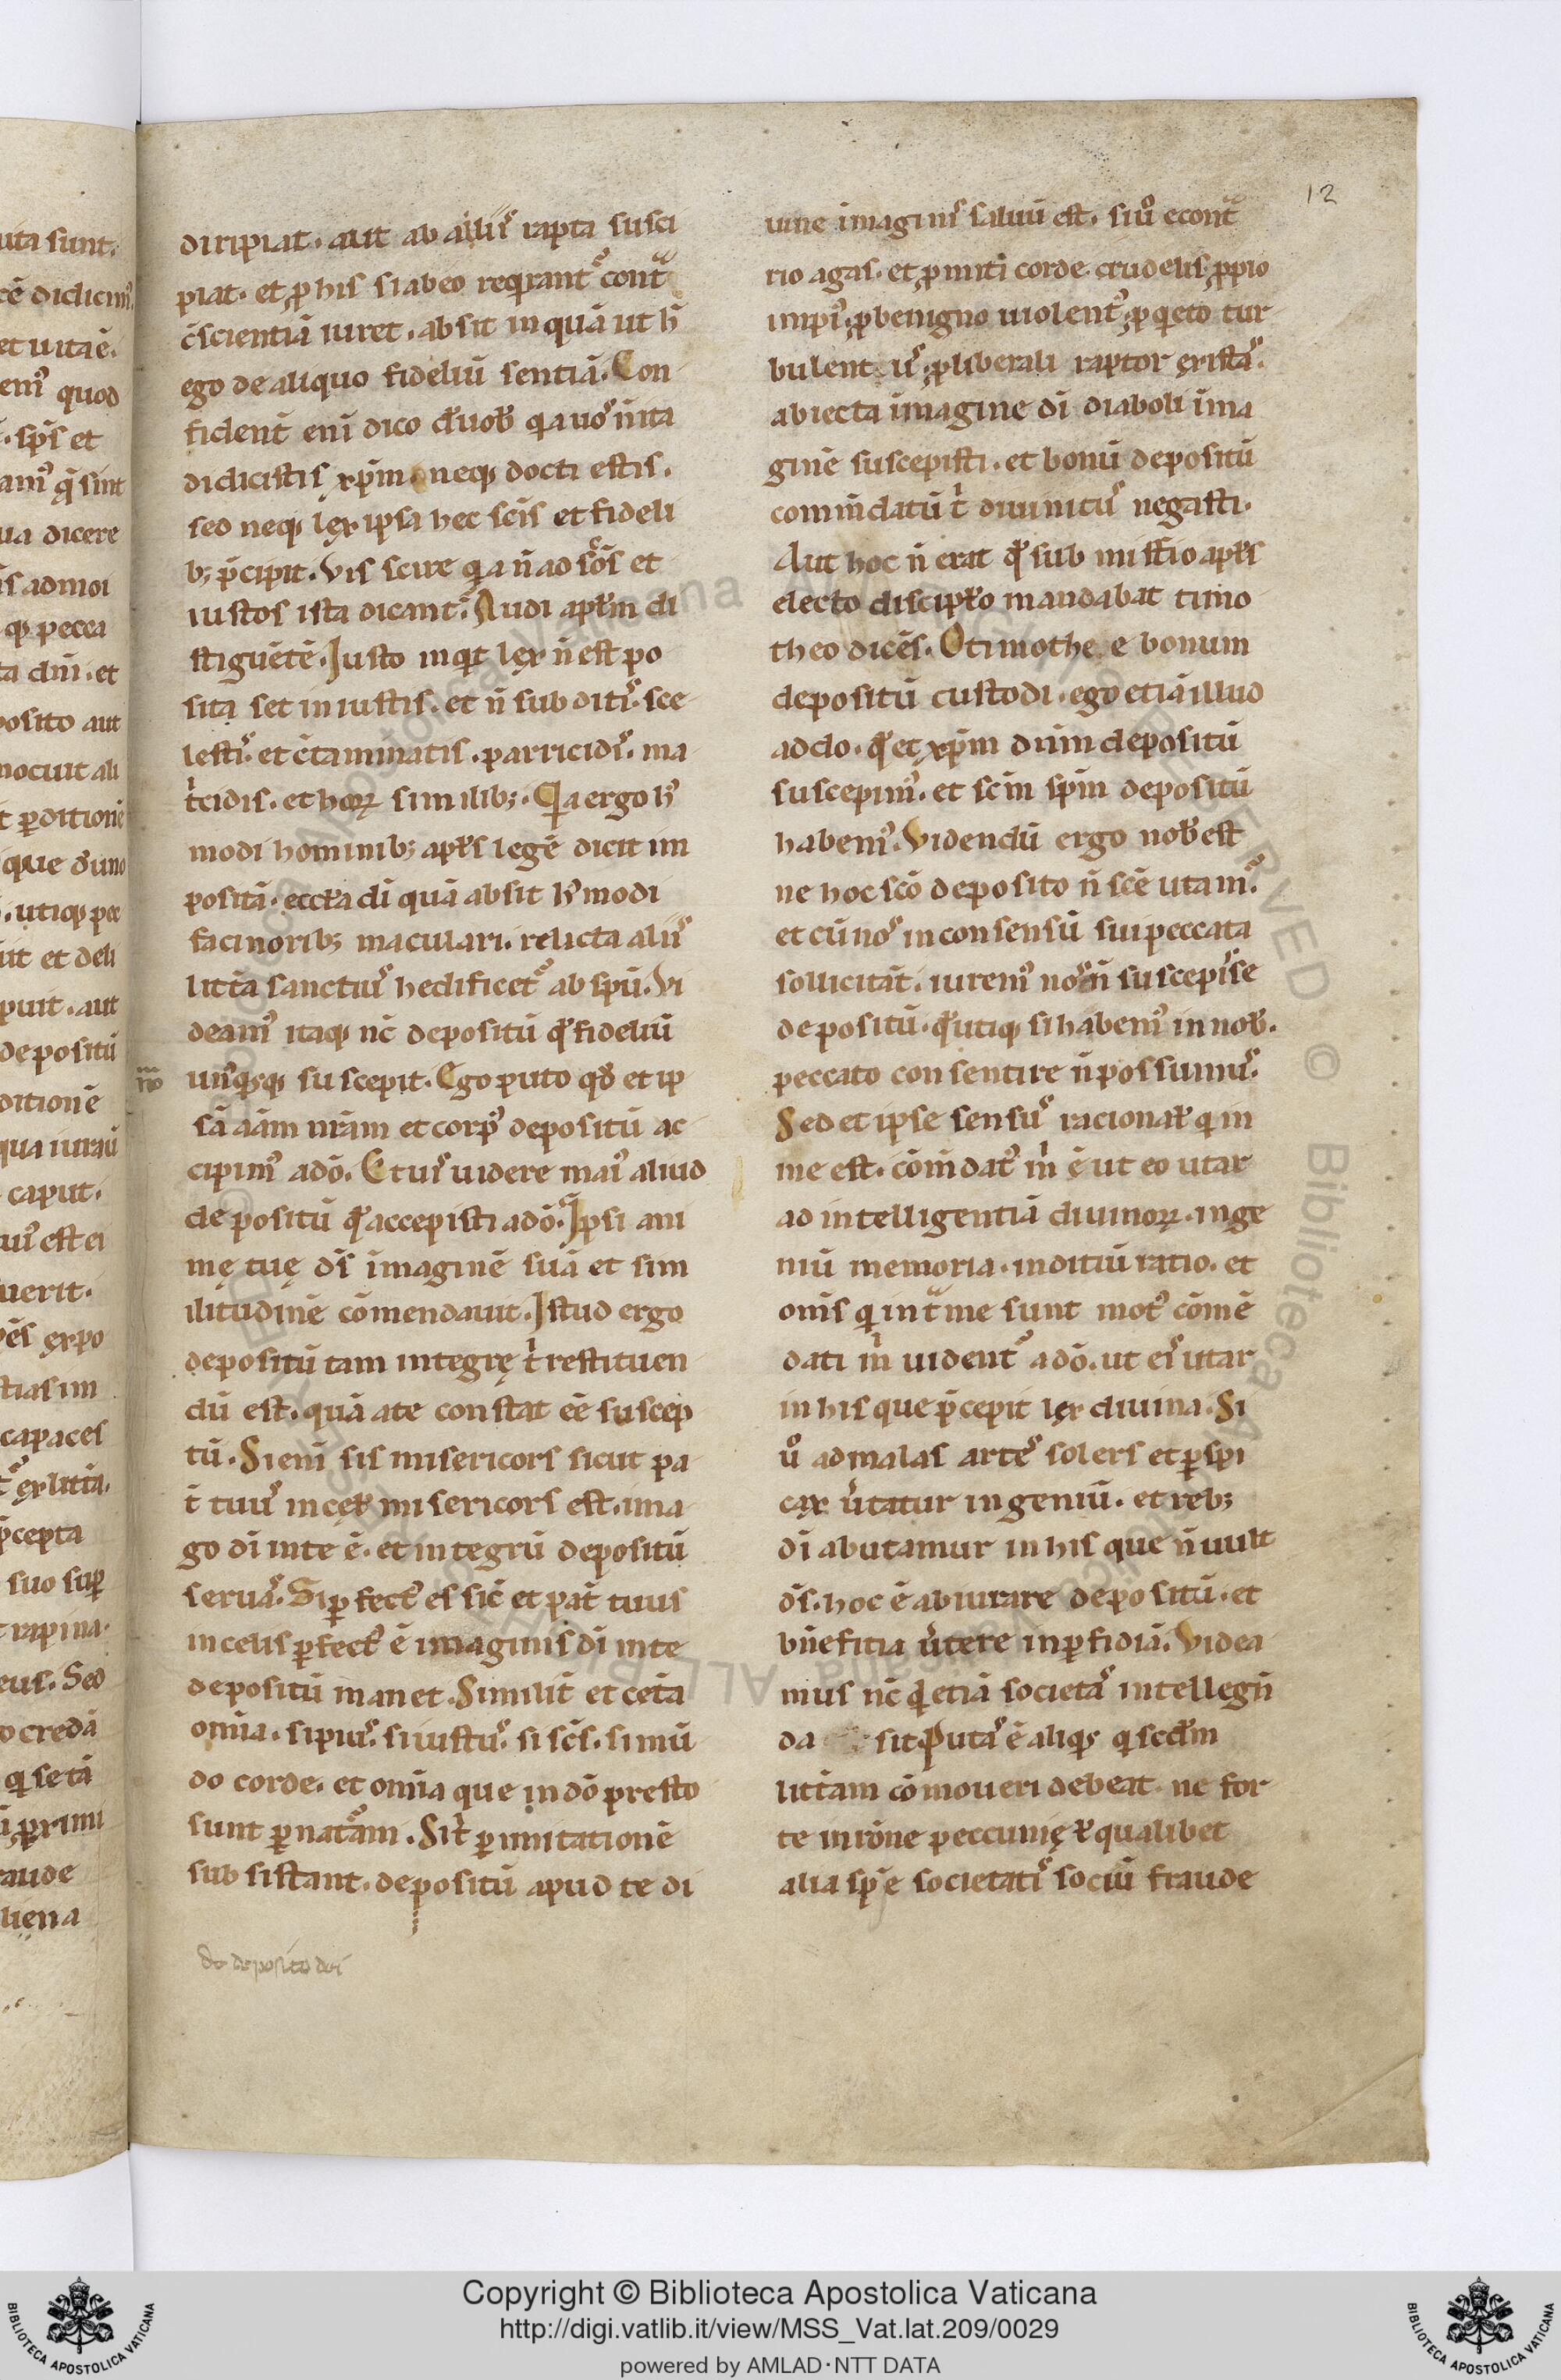 uta sunt.
et uitā ē.
quod
sp̄s et
ua dicere
ta dn̄i. et
posito aut
nocuit ali
que
utiq; pec
ut et deli
puit. aut
depositū
ditionē
caput.
uerit.
capaces
p̄cepta
rapina.
eus. Sed
o credā
raude
liena
12
diripiat. aut ab aliis rapta susci
piat. et ꝓ his si ab eo reqͥrantᷣ contᷓ
c̄scientiā iuret. absit inquā ut h̄
ego de aliquo fideliū sentiā. Con
fident̄ eni dico
didicistis xp̄m. neq; docti estis.
sed neq; lex ipsa hec scīs et fideli
b; p̄cipit. Vis scire qͥa n̄ ad sc̄os et
iustos ista dicant᷒. Audi apl̄m di
stiguētē. Iusto inqͥt lex n̄ est po
sita set iniustis. et n̄ subditis. sce
lestis. et c̄taminatis. parricidis. ma
t͛cidis. et hoꝝ similib;. Qͥa ergo hꝰ
modi hominib; apl̄s legē dicit im
positā. eccl̄a di quā absit hꝰmodi
facinorib; maculari. relicta aliis
litt̄a sanctius hedificetᷣ ab spū. Vi
deamꝰ itaq; nc̄ depositū qd̄ fideliū
unꝰqͥsq; suscepit. Ego puto qd̄ et ip
sā aīam nr̄am et corpꝰ depositū ac
cipimꝰ a dō. Et uis uidere maiꝰ aliud
depositū qd̄ accepisti a dō. Ipsi ani
mę tuę ds̄ imaginē suā et sim
ilitudinē cōmendauit. Istud ergo
depositū tam integrę t͛ restituen
dū est. quā a te constat eē suscep
tū. Si eni sis misericors sicut pa
t̄ tuus in cęl̄ misericors est. ima
go dī in te ē. et integrū depositū
seruas. Si ꝑfectꝰ es sic̄ et pat̄ tuus
in celis ꝑfectꝰ ē imaginis dī in te
depositū manet. Similit̄ et cet̄a
omīa. si pius. si iustus. si sc̄s. si mū
do corde. et omīa que in dō presto
sunt ꝑ natᷓam. Si t͛ ꝑ imitationē
subsistant. depositū apud te di
de deposito dei
uine imaginis saluū est. si uͦ econtᷓ
rio agas. et ꝓ miti corde crudelis. ꝓ pio
impiꝰ. ꝓ benigno uiolentꝰ. ꝓ qͥeto tur
bulentus. ꝓ liberali raptor existas.
abiecta imagine dī diaboli ima
ginē suscepisti. et bonū depositū
comn̄datū t͛ diuinitus negasti.
Aut hoc n̄ erat qd̄ sub mist̄io apl̄s
electo discipl̄o mandabat timo
theo dicēs. O timothee bonum
depositū custodi. ego etiā illud
addo. qd̄ et xp̄m dn̄m depositū
suscepimꝰ. et sc̄m sp̄m depositū
habemꝰ. Videndū ergo nob̄ est
ne hoc sc̄o deposito n̄ sc̄e utamᷣ.
et cū nos in consensū sui peccata
sollicitāt. iuremꝰ nos n̄ suscepisse
depositū. qd̄ utiq; si habemꝰ in nob̄.
peccato consentire n̄ possumus.
Sed et ipse sensus racional̄ qͥ in
me est. cōm̄datꝰ m̄ ē ut eo utar
ad intelligentiā diuinoꝝ. inge
niū memoria. inditiū ratio. et
om̄s qͥ intᷓ me sunt motꝰ cōmē
dati m̄ uidentᷣ a dō. ut eis utar
in his que p̄cepit lex diuina. Si
uͦ ad malas artes solers et ꝑspi
cax u͛tatur ingeniū. et reb;
dī abutamur in his que n̄ uult
ds̄. hoc ē abiurare depositū. et
bn̄efitia u͛tere in ꝑfidiā. Videa
mus nc̄ qͥ etiā societas intellegn̄
da sit. Putas ē aliqͥs qͥ scd̄m
litt̄am cōmoueri debeat. ne for
te in rōne peccunię ł qualibet
alia sp̄e societatis sociū fraude
Copyright © Biblioteca Apostolica Vaticana
http://digi.vatlib.it/view/MSS_Vat.lat.209/0029
powered by AMLAD·NTT DATA
BIBLIOTECA APOSTOLICA VATICANA
BIBLIOTECA APOSTOLICA VATICANA